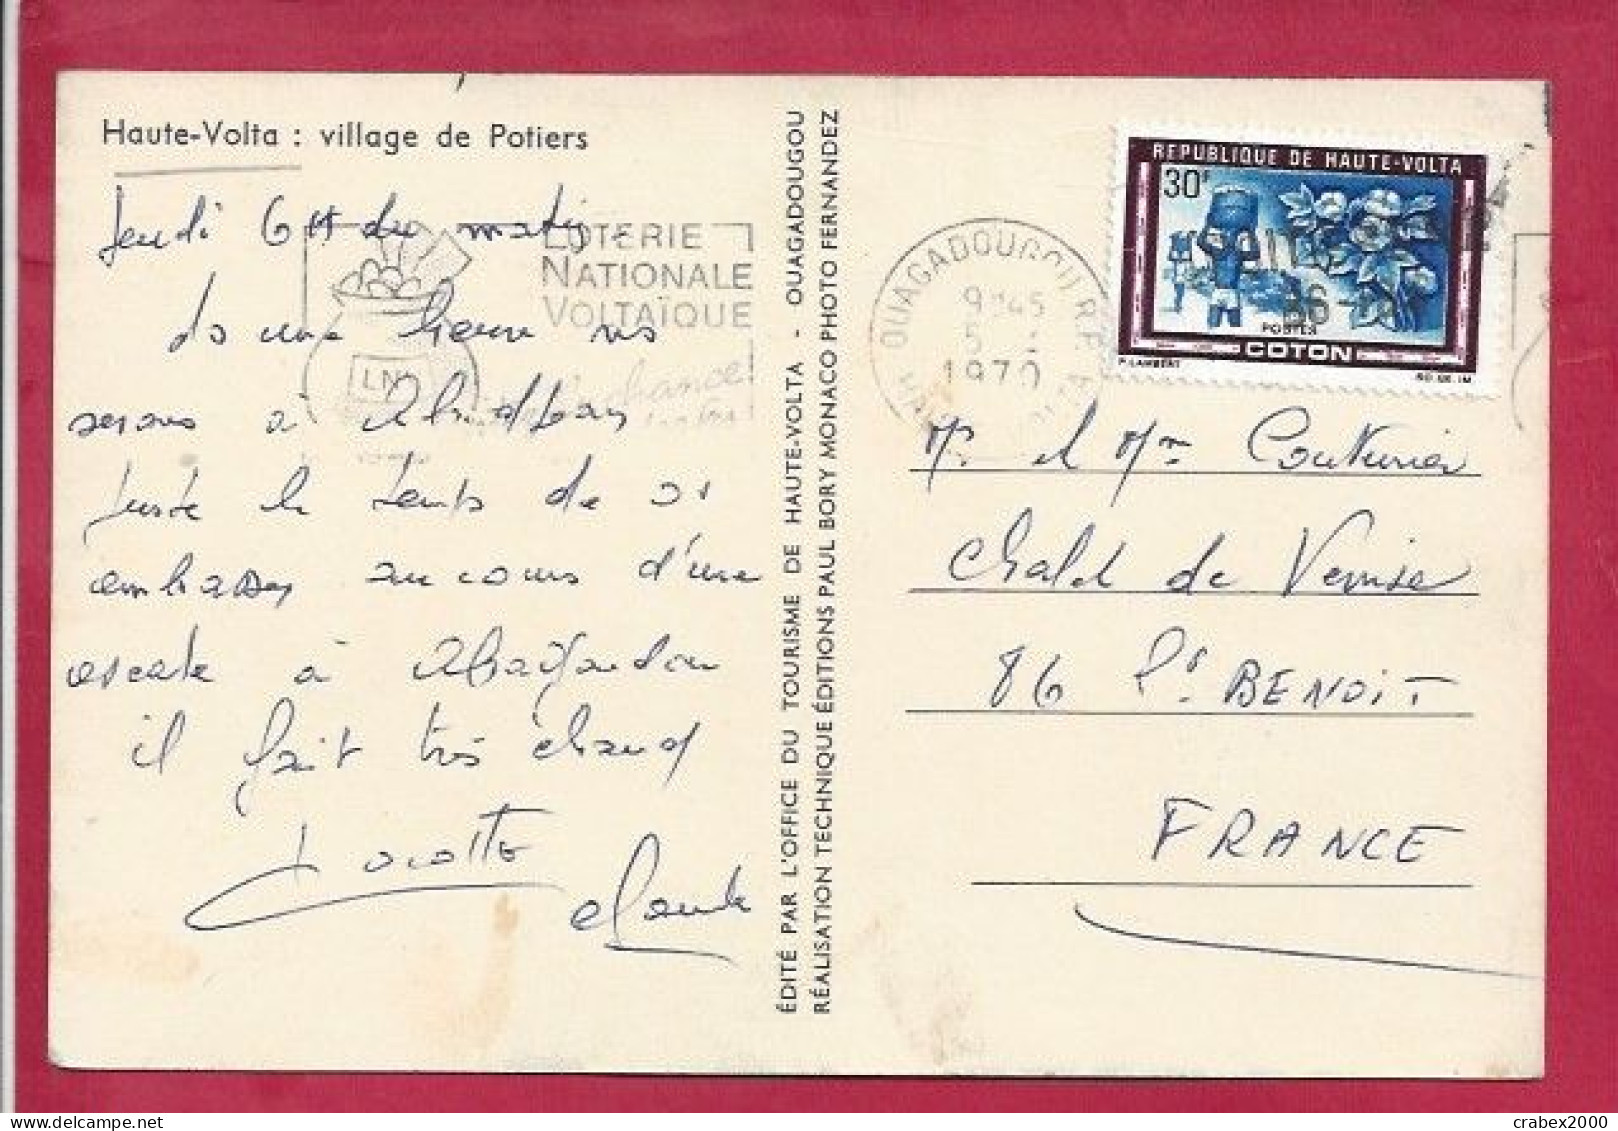 Haute-Volta : village de Potiers
Jeudi 6H du matin
ds une heure ns
serons à
juste le temps de
embrasser au cours d'une
escale à
il fait très chaud
Cocotte
Claude
LOTERIE
NATIONALE
VOLTAÏQUE
LN
chance
ÉDITÉ PAR L'OFFICE DU TOURISME DE HAUTE-VOLTA - OUAGADOUGOU
RÉALISATION TECHNIQUE ÉDITIONS PAUL BORY MONACO PHOTO FERNANDEZ
OUAGADOUGOU R.P.
9H45
5
1970
REPUBLIQUE DE HAUTE-VOLTA
30F
POSTES
COTON
P. LAMBERT
SO.GE.IM
Mr et Mme Couturier
Chalet de Venise
86 St. BENOIT
FRANCE
crabex2000